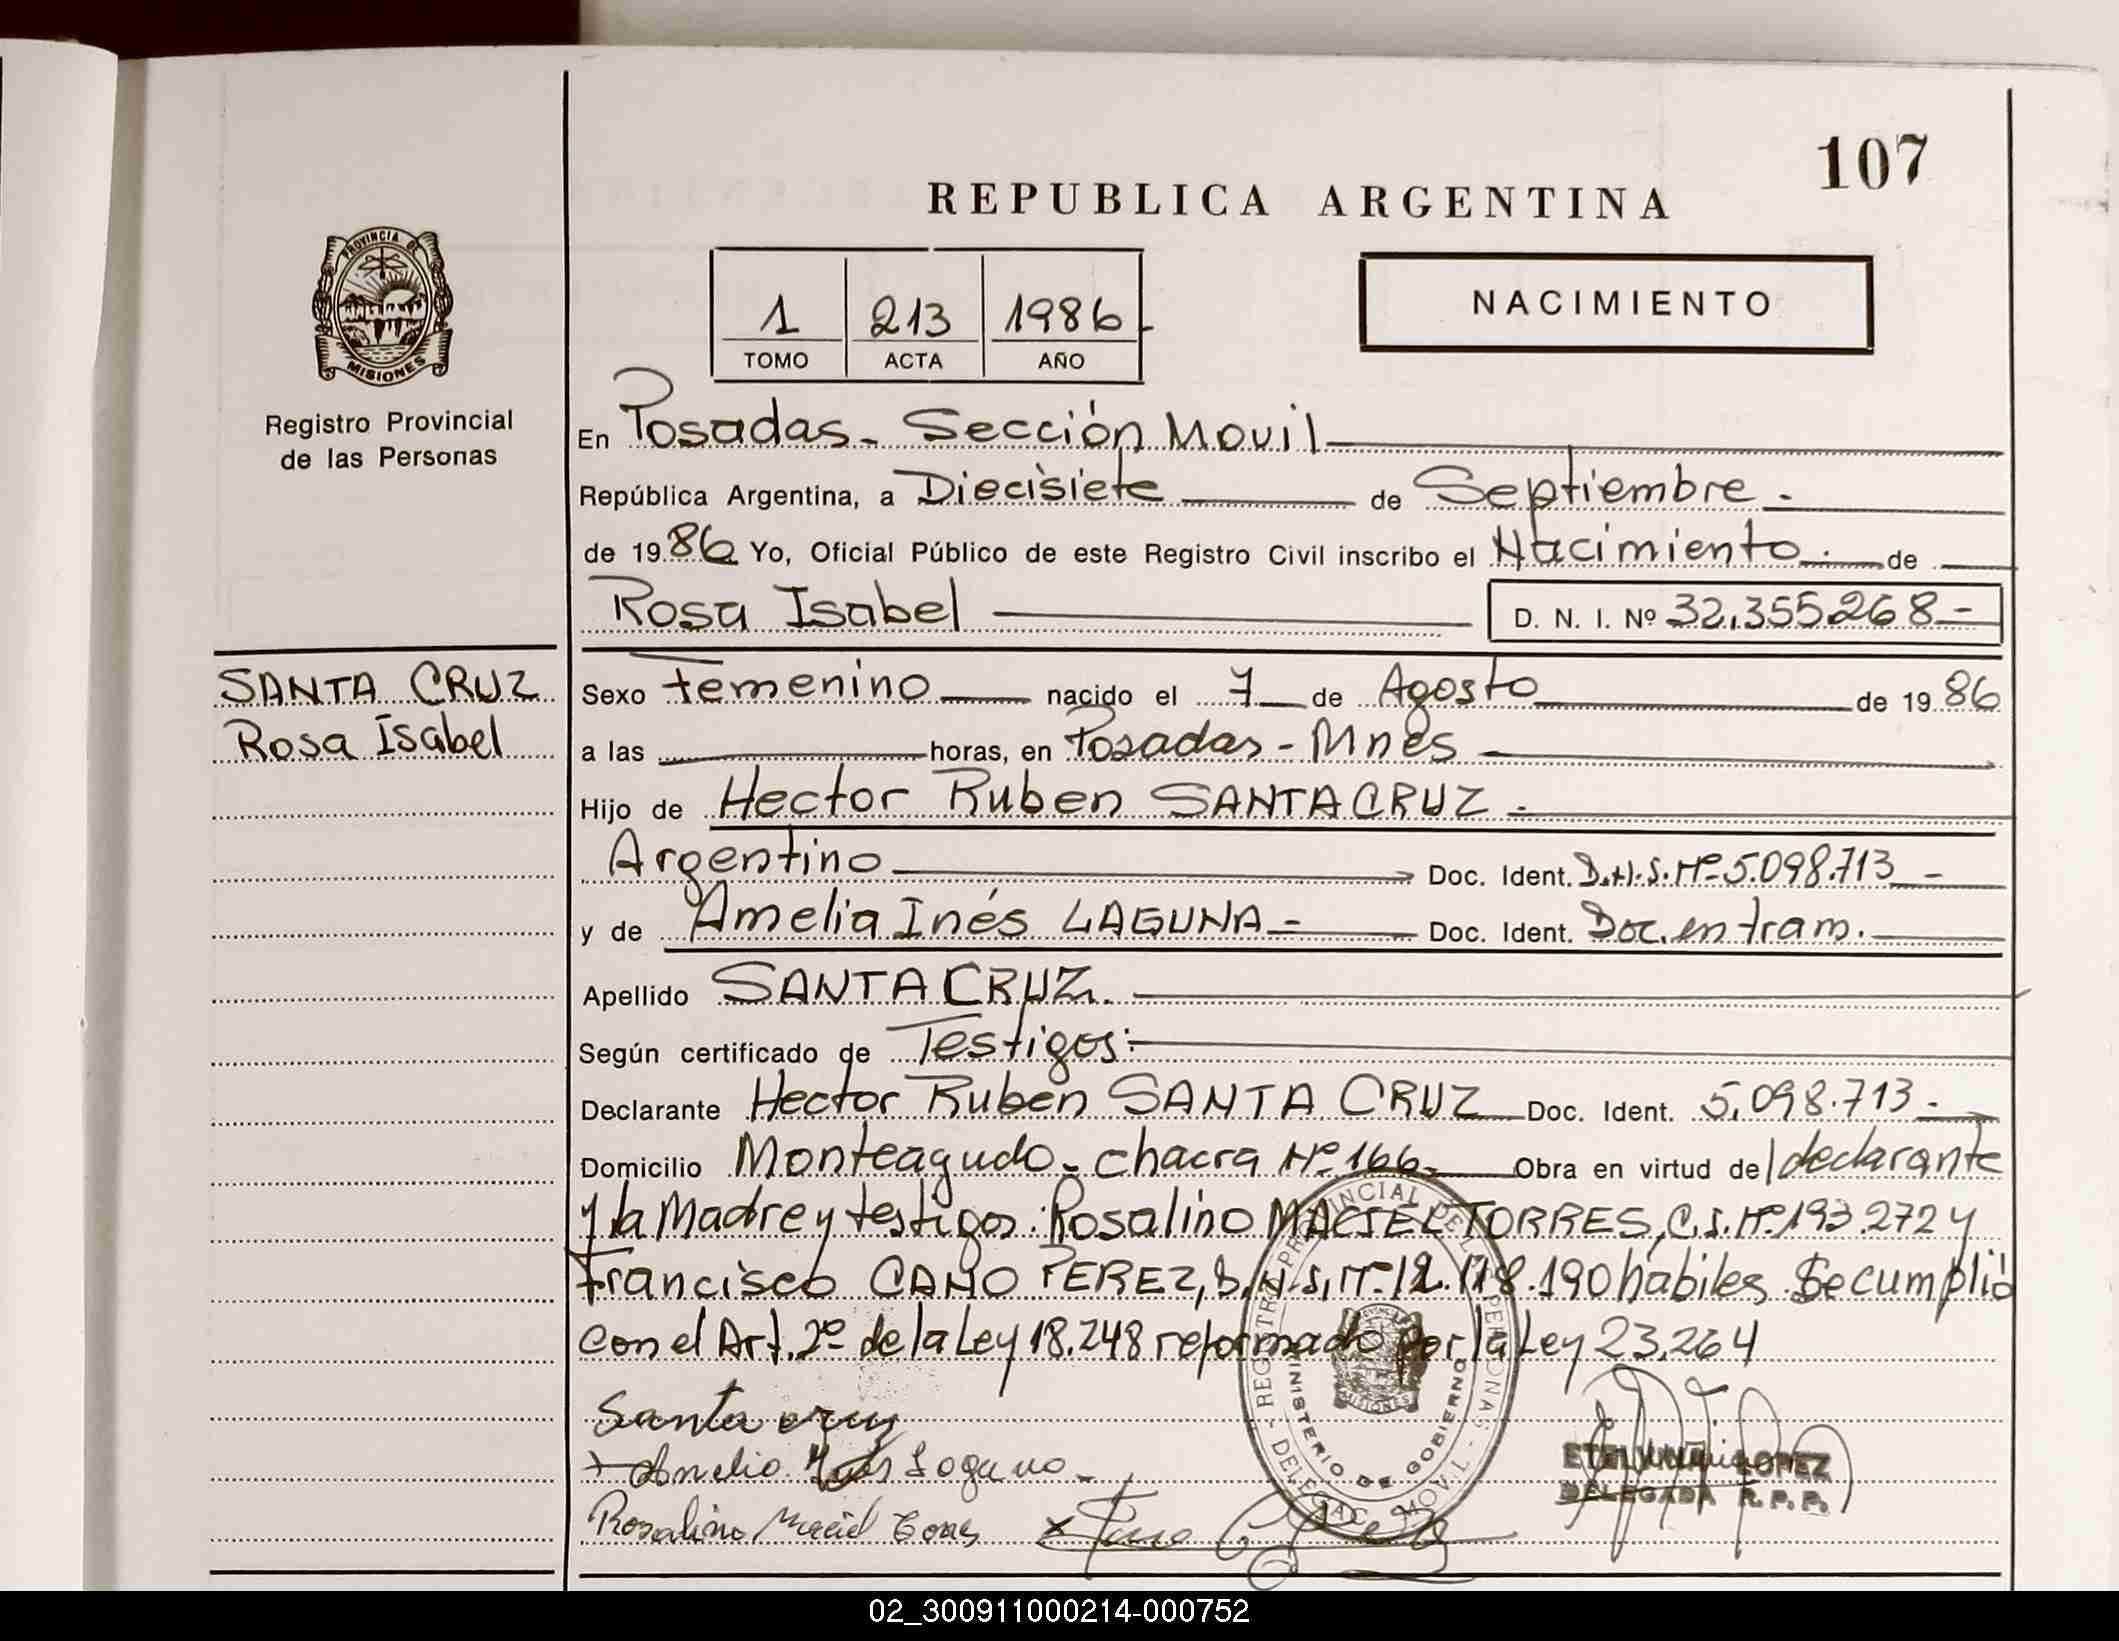 107
REPUBLICA ARGENTINA
PROVINCIA DE MISIONES
1 213 1986
TOMO ACTA AÑO
NACIMIENTO
Registro Provincial
de las Personas
En Posadas - Sección Movil
República Argentina, a Diecisiete de Septiembre.
de 1986 Yo, Oficial Público de este Registro Civil inscribo el Nacimiento. de
Rosa Isabel D. N. I. Nº 32.355.268-
SANTA CRUZ
Rosa Isabel
Sexo Femenino nacido el 7 de Agosto de 1986
a las horas, en Posadas - Mnes
Hijo de Hector Ruben SANTA CRUZ -
Argentino Doc. Ident. D.N.I. Nº 5.098.713 -
y de Amelia Inés LAGUNA - Doc. Ident. Doc. en tram.
Apellido SANTA CRUZ.
Según certificado de Testigos:
Declarante Hector Ruben SANTA CRUZ Doc. Ident. 5.098.713 -
Domicilio Monteagudo - chacra Nº 166 - Obra en virtud de declarante
y la Madre y testigos: Rosalino MACIEL TORRES, C.I. Nº 193.272 y
Francisco CANO PEREZ, D.N.I. Nº 12.118.190 habiles. Se cumplió
con el Art. 2º de la Ley 18.248 reformado por la Ley 23.264
REGISTRO PROVINCIAL DE LAS PERSONAS - DELEGAC. MOVIL -
MINISTERIO DE GOBIERNO
Santa cruz
Amelia Inés Laguna -
Rosalino Maciel Torres
LOPEZ
DELEGADA R. P. P.
02_300911000214-000752